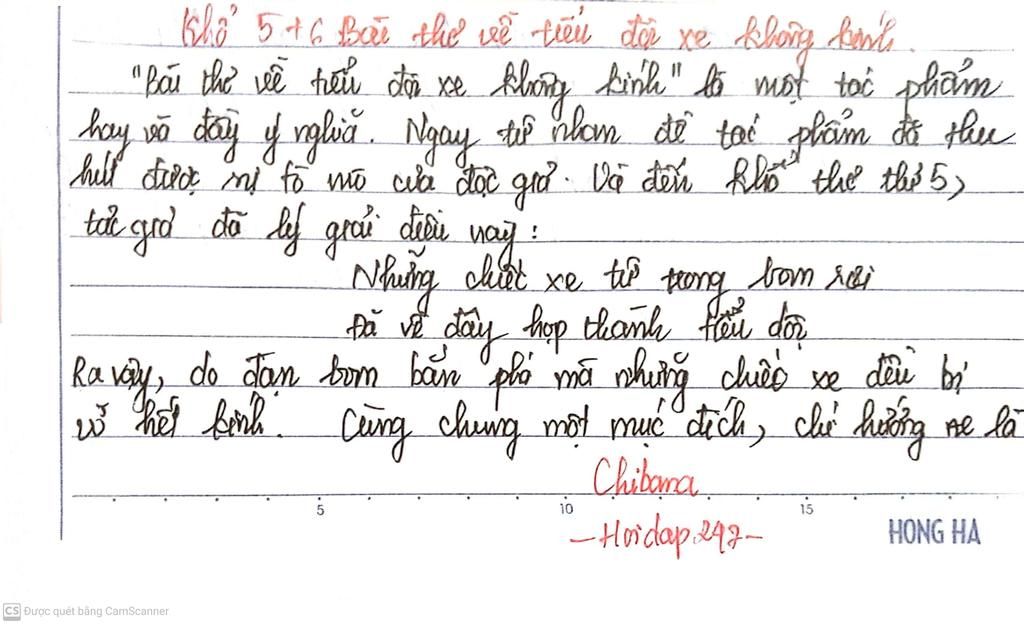 Khổ 5 + 6 Bài thơ về tiểu đội xe không kính.
"Bài thơ về tiểu đội xe không kính" là một tác phẩm
hay và đầy ý nghĩa. Ngay từ nhan đề tác phẩm đã thu
hút được sự tò mò của độc giả. Và đến khổ thơ thứ 5,
tác giả đã lý giải điều này:
Những chiếc xe từ trong bom rơi
Đã về đây họp thành tiểu đội
Ra vậy, do đạn bom bắn phá mà những chiếc xe đều bị
vỡ hết kính. Cùng chung một mục đích, chí hướng
là
Chibana
5 10 15
-Hoidap247-
HONG HA
CS Được quét bằng CamScanner